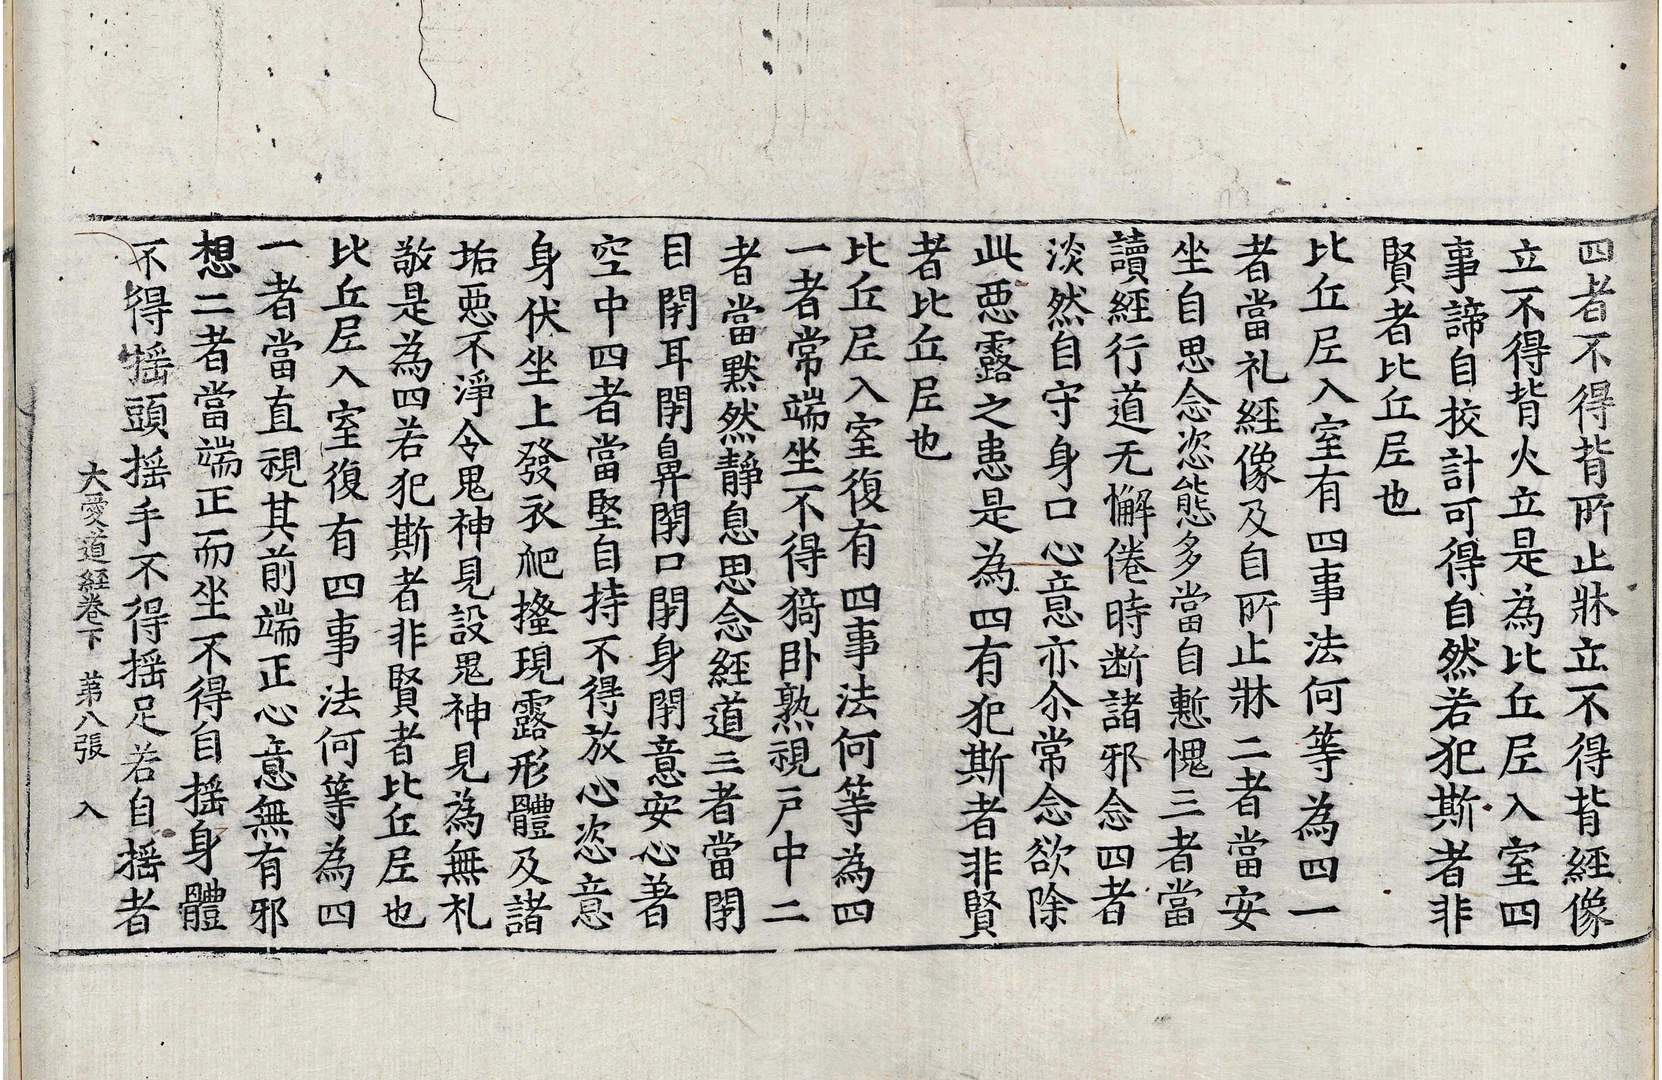 四者不得背所止牀立不得背經像
立不得背火立是為比丘尼入室四
事諦自挍計可得自然若犯斯者非
賢者比丘尼也
比丘尼入室有四事法何等為四一
者當礼經像及自所止牀二者當安
坐自思念恣態多當自慙愧三者當
讀經行道无懈倦時断諸邪念四者
淡然自守身口心意亦尒常念欲除
此惡露之患是為四有犯斯者非賢
者比丘尼也
比丘尼入室復有四事法何等為四
一者常端坐不得猗卧熟視戸中二
者當黙然靜息思念經道三者當閉
目閉耳閉鼻閉口閉身閉意安心著
空中四者當堅自持不得放心恣意
身伏坐上發衣爬搔現露形體及諸
垢惡不淨令鬼神見設鬼神見為無礼
敬是為四若犯斯者非賢者比丘尼也
比丘尼入室復有四事法何等為四
一者當直視其前端正心意無有邪
想二者當端正而坐不得自揺身體
不得揺頭揺手不得揺足若自揺者
大愛道經卷下 第八張 入